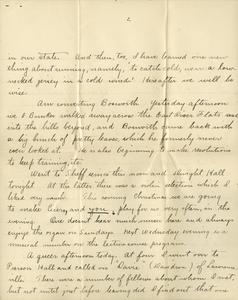 2
in our state. And then, too, I have learned one new
thing about running, namely, "to catch cold, wear a low
necked jersey in a cold wind." Hereafter we will be
wise.
Am converting Bosworth. Yesterday afternoon
we &  walked away across the East River Flats and
into the hills beyond, and Bosworth came back with
a big bunch of pretty leaves, which he formerly never
ever looked at. He is also beginning to make resolutions
to keep training, etc.
Went to Sheff  this morn and Wright Hall
tonight. At the latter there was a violin selection which I
liked very much. This coming Christmas we are going
to make Leery, and you, play for us very often, in the
evening. We don't hear much music here and always
enjoy the organ on Sundays. Next Wednesday evening is a
musical number on the lecture course program.
A queer afternoon today. At four I went over to
Pierson Hall and called on "Davie" (Davidson) of
. There was a number of fellows about whom I met,
but not until just before leaving did I find out that one